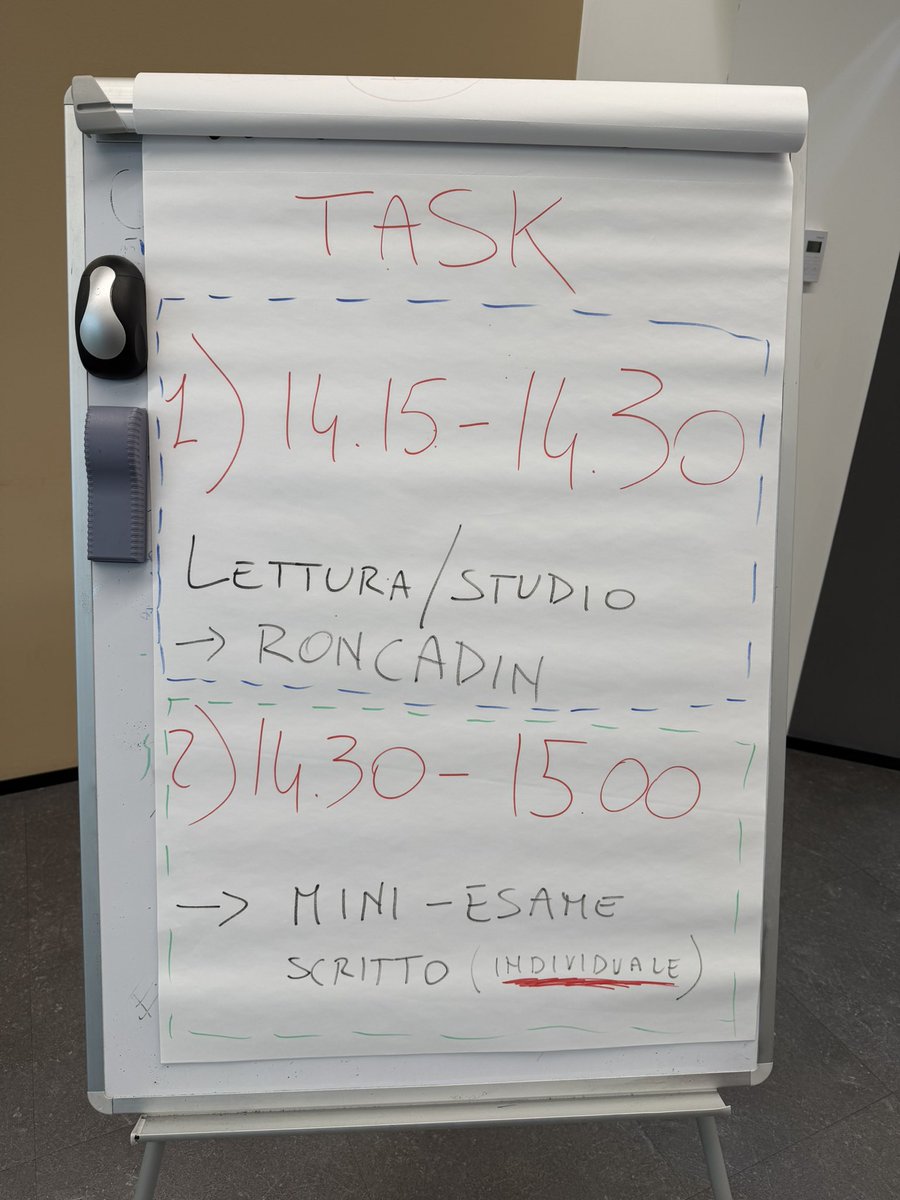 TASK
1) 14.15 - 14.30
LETTURA/STUDIO
→ RONCADIN
2) 14.30 - 15.00
→ MINI - ESAME
SCRITTO (INDIVIDUALE)